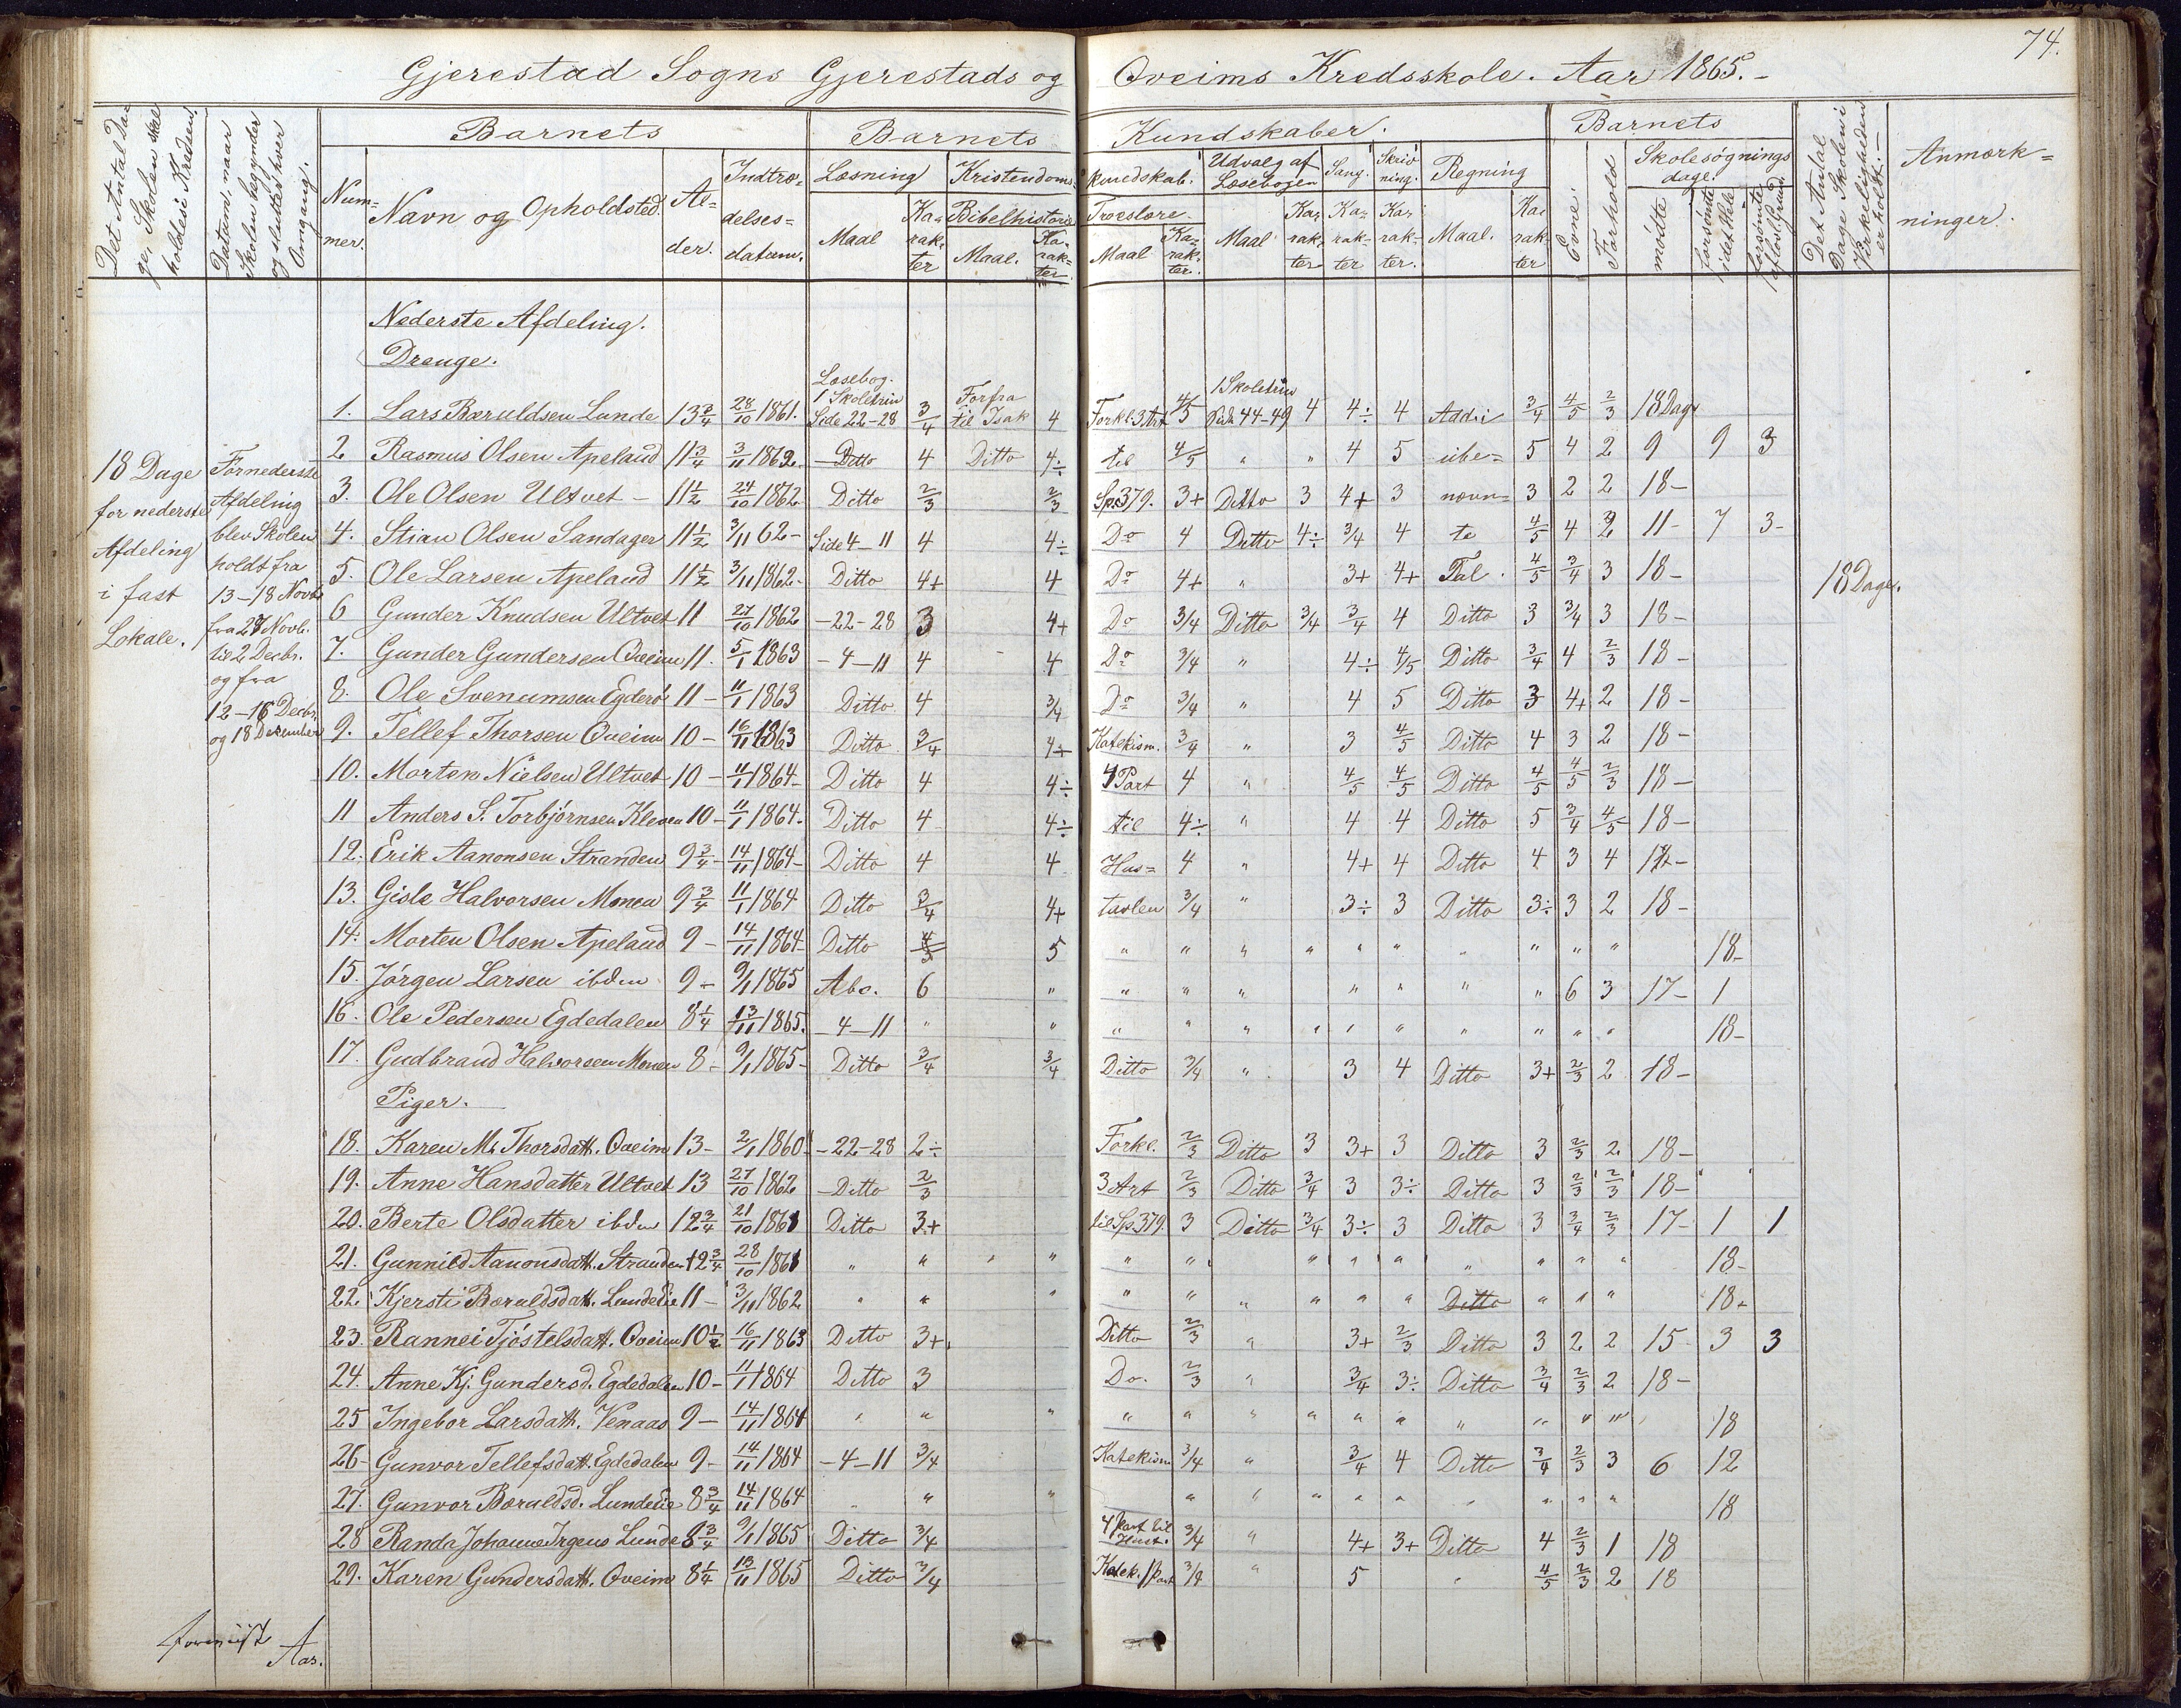 74.
Gjerestad Sogns Gjerestads og Qveims Kredsskole. Aar 1865.-
Det Antal Dage, Skolen skal holdes i Kredsen.
Datum, naar Skolen begynder og slutter hver Omgang.
Barnets
Barnets Kundskaber.
Barnets
Nummer.
Navn og Opholdsted.
Alder.
Indtrædelsesdatum.
Læsning
Maal
Karakter
Kristendomskundskab.
Bibelhistorie
Maal.
Karakter
Troeslære.
Maal
Karakter.
Udvalg af Læsebogen
Maal
Karakter
Sang.
Karakter
Skrivning.
Karakter.
Regning
Maal.
Karakter
Evne
Forhold
Skolesøgningsdage.
mødte
forsømte i det Hele
forsømte af lovl. Grund.
Det Antal Dage Skolen i Virkeligheden er holdt.-
Anmærkninger.
18 Dage for nederste Afdeling i fast Lokale.
For nederste Afdeling blev Skolen holdt fra 13-18 Novbr. fra 27 Novb. til 2 Decbr. og fra 12-16 Decbr. og 18 December
Nederste Afdeling.
Drenge.
1. Lars Bæruldsen Lunde 13 3/4 28/10 1861. Læsebog. 1 Skoletrin Side 22-28 3/4 Forfra til Isak 4 Forkl. 3 Art 4/5 1 Skoletrin Side 44-49 4 4÷ 4 Addi 3/4 4/5 2/3 18 Dage
2 Rasmus Olsen Apeland 11 3/4 3/11 1862. Ditto 4 Ditto 4÷ til 4/5 " " 4 5 ube= 5 4 2 9 9 3
3. Ole Olsen Ultvet - 11 1/2 24/10 1862 Ditto 2/3 2/3 Sp. 379. 3+ Ditto 3 4+ 3 nævn= 3 2 2 18-
4. Stian Olsen Sandager 11 1/2 3/11 62- Side 4-11 4 4÷ Do 4 Ditto 4÷ 3/4 4 te 4/5 4 2 11- 7 3-
5. Ole Larsen Apeland 11 1/2 3/11 1862- Ditto 4+ 4 Do 4+ " 3+ 4+ Tal. 4/5 3/4 3 18- 18 Dage.
6 Gunder Knudsen Ultvet 11 27/10 1862 -22-28 3 4+ Do 3/4 Ditto 3/4 3/4 4 Ditto 3 3/4 3 18-
7. Gunder Gundersen Qveim 11. 5/1 1863 -4-11 4 4 Do 3/4 " 4÷ 4/5 Ditto 3/4 4 2/3 18-
8. Ole Svenumsen Egderø 11- 11/1 1863 Ditto 4 3/4 Do 3/4 " 4 5 Ditto 3 4+ 2 18-
9. Tellef Thorsen Qveim 10- 16/11 1863 Ditto 3/4 4+ Katekism. 3/4 " 3 4/5 Ditto 4 3 2 18-
10. Morten Nielsen Ultvet 10- 11/1 1864- Ditto 4 4÷ 4 Part 4 " 4/5 4/5 Ditto 4/5 4/5 2/3 18-
11 Anders S. Torbjørnsen Kleven 10- 11/1 1864. Ditto 4 4÷ til 4÷ " 4 4 Ditto 5 3/4 4/5 18-
12. Erik Aanonsen Stranden 9 3/4- 14/11 1864- Ditto 4 4 Hus= 4 " 4+ 4 Ditto 4 3 4
13. Gisle Halvorsen Monen 9 3/4 11/1 1864 Ditto 3/4 4+ tavlen 3/4 " 3÷ 3 Ditto 3÷ 3 2 18-
14. Morten Olsen Apeland 9- 14/11 1864- Ditto 5 " " " " " " " " " " 18-
15. Jørgen Larsen ibdm 9- 9/1 1865 Abc. 6 " " " " " " " " 6 3 17- 1
16. Ole Pedersen Egdedalen 8 1/4 13/11 1865. -4-11 " " " " " " " " " " " " 18-
17. Gudbrand Halvorsen Monen 8- 9/1 1865- Ditto 3/4 3/4 Ditto 3/4 " 3 4 Ditto 3+ 2/3 2 18-
Piger.
18. Karen M. Thorsdatt. Qveim 13- 2/1 1860 -22-28 2÷ Forkl. 2/3 Ditto 3 3+ 3 Ditto 3 2/3 2 18-
19. Anne Hansdatter Ultvet 13 27/10 1862 -Ditto 2/3 3 Art 2/3 Ditto 3/4 3 3÷ Ditto 3 2/3 2/3 18-
20. Berte Olsdatter ibdm 12 3/4 21/10 1861 Ditto 3+ til Sp. 379. 3 Ditto 3/4 3÷ 3 Ditto 3 3/4 2/3 17- 1 1
21. Gunnild Aanonsdatt. Stranden 12 3/4 28/10 1861 " " " " " " " " " " " " " 18-
22. Kjersti Bæruldsdatt. Lundelie 11- 3/11 1862 " " " " " " " " " Ditto " " " 18+
23. Rannei Tjøstelsdatt. Qveim 10 1/2 16/11 1863 Ditto 3+ Ditto 2/3 " 3+ 2/3 Ditto 3 2 2 15 3 3
24. Anne Kj. Gundersd. Egdedalen 10- 11/1 1864 Ditto 3 Do. 2/3 " 3/4 3÷ Ditto 3/4 2/3 2 18-
25 Ingebor Larsdatt. Venaas 9- 14/11 1864 " " " " " " " " " " " " " 18
26- Gunvor Tellefsdatt. Egdedalen 9- 14/11 1864 -4-11 3/4 Katekism 3/4 " 3/4 4 Ditto 3/4 2/3 3 6 12
27. Gunvor Bæruldsd. Lundelie 8 3/4 14/11 1864 " " " " " " " " " " " " 18
28 Randa Johanne Irgens Lunde 8 3/4 9/1 1865 Ditto 3/4 4 Part til Hust. 3/4 " 4+ 3+ Ditto 4 2/3 1 18
29. Karen Gundersdatt. Qveim 8 1/4 13/11 1865 Ditto 3/4 Katek. 1 Part 3/4 " 5 " 4/5 2/3 2 18
Aar.